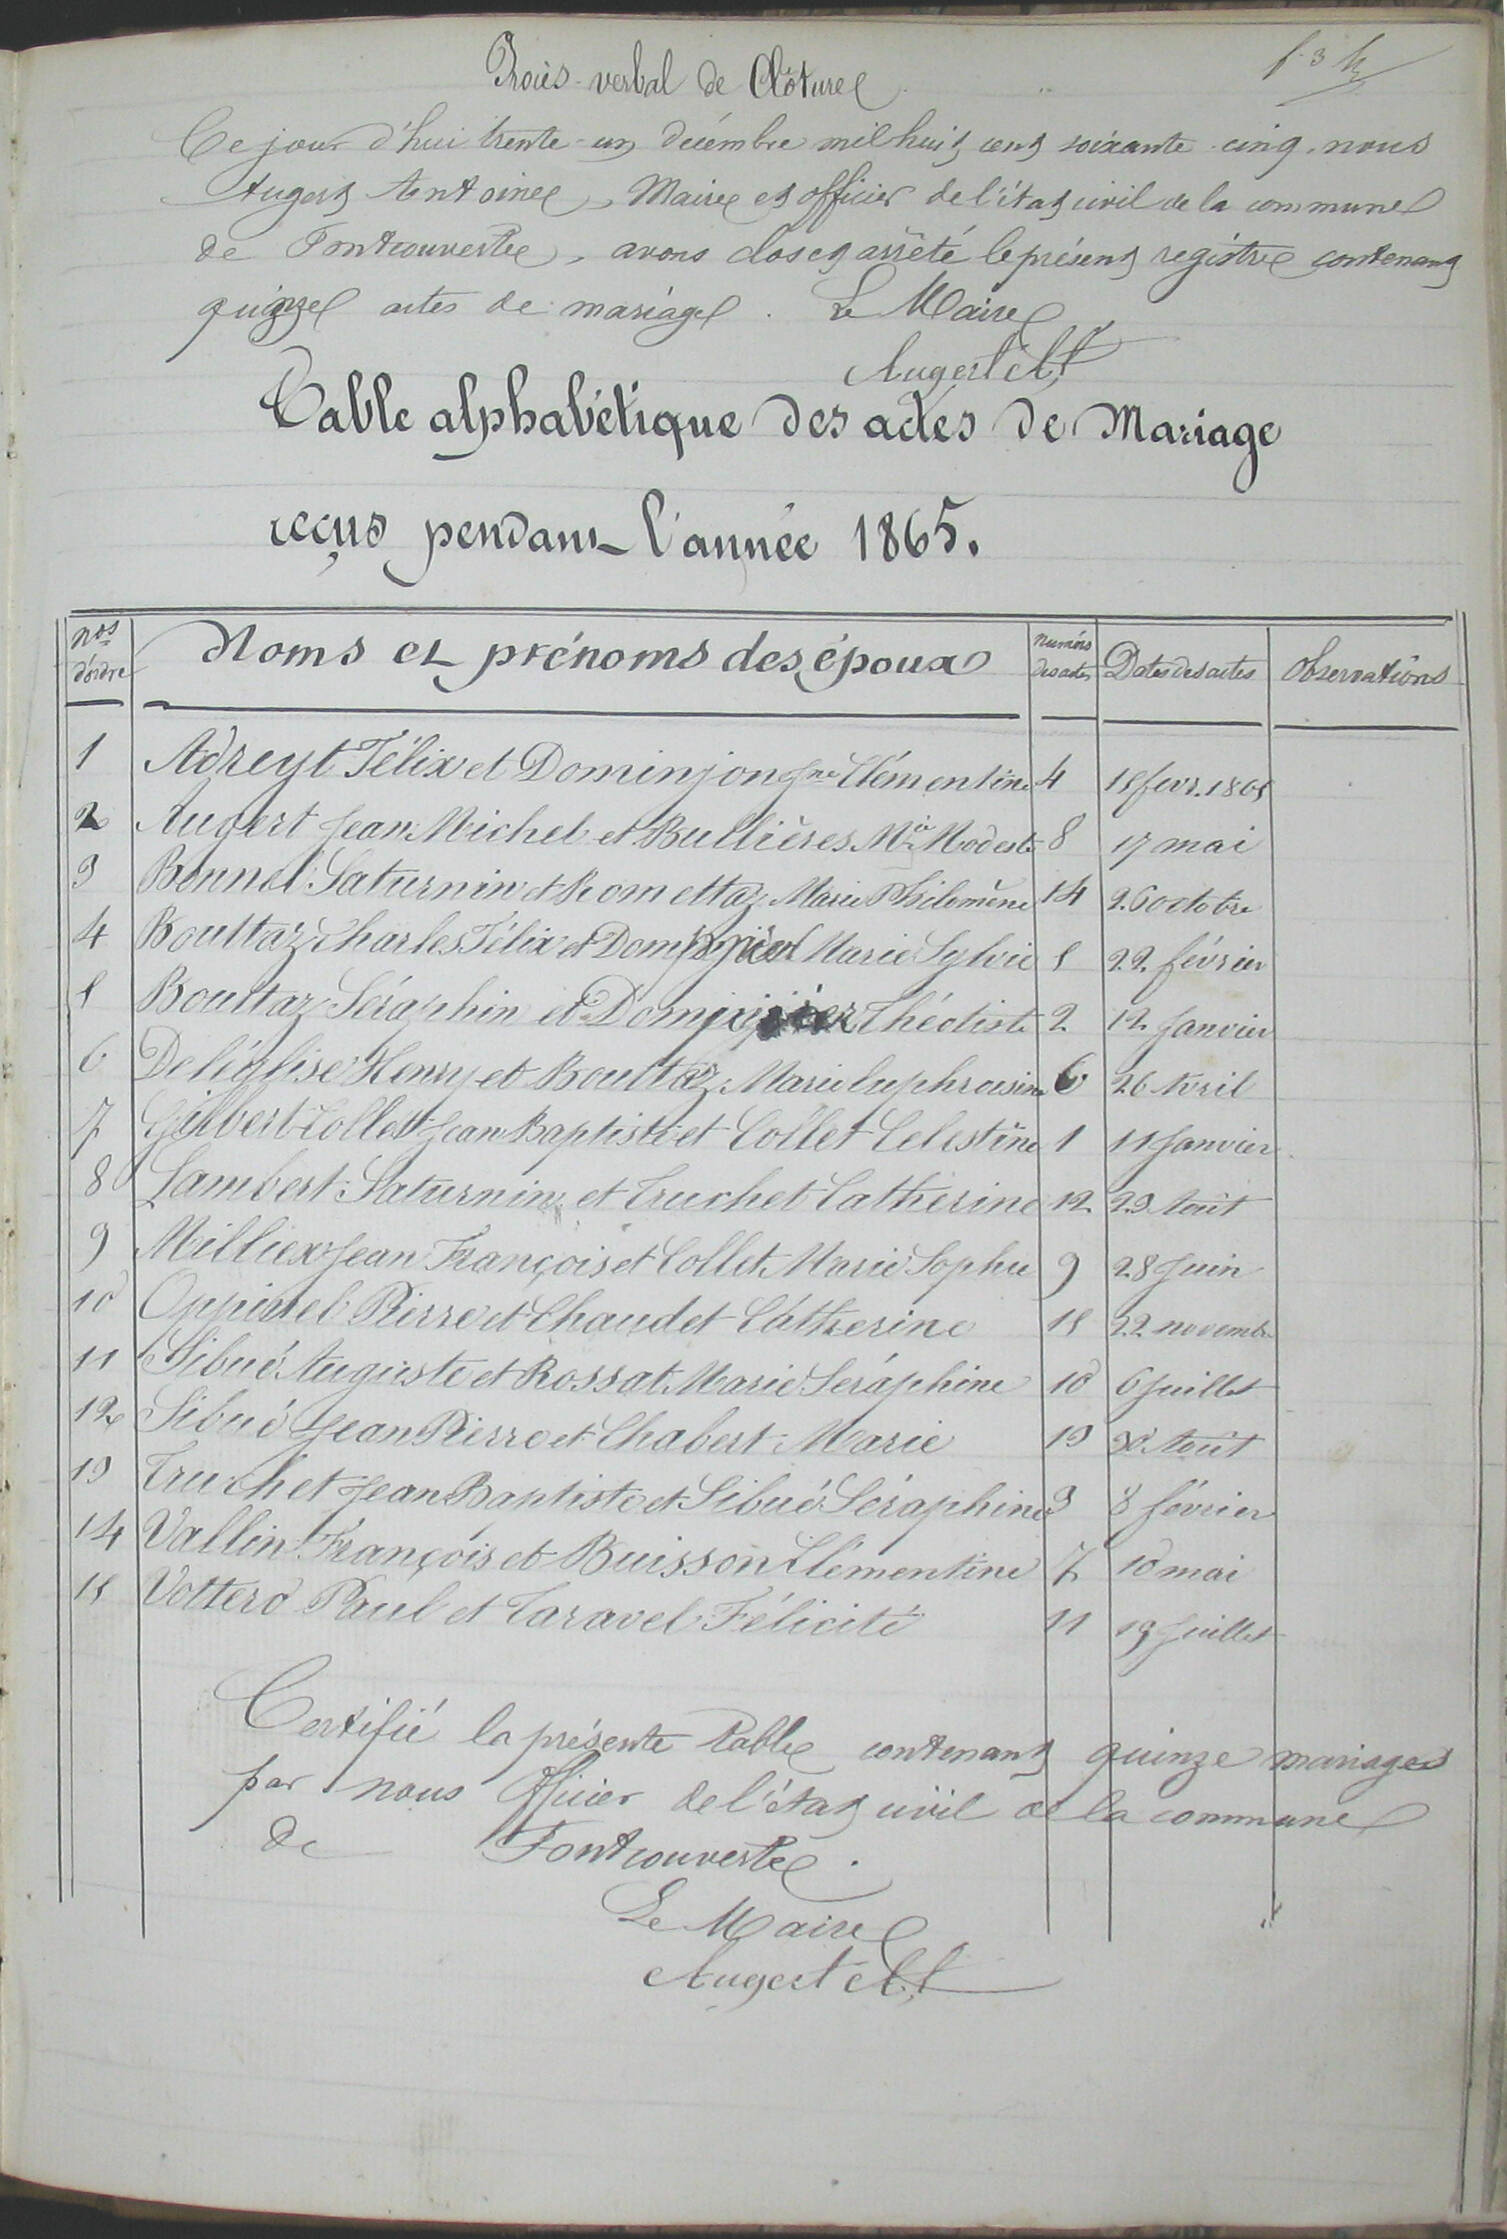 Procès-verbal de Clôture
Ce jour d'hui trente-un décembre mil huit cent soixante-cinq, nous
Augert Antoine, Maire et officier de l'état civil de la commune
de Fontcouverte, avons clos et arrêté le présent registre contenant
quinze actes de mariage. Le Maire
Augert At
Table alphabétique des actes de Mariage
reçus pendant l'année 1865.
Nos d'ordre Noms et prénoms des époux Numéros des actes Dates des actes Observations
1 Adreyt Félix et Dominjon Clémentine 4 15 fevr. 1865
2 Augert Jean Michel et Bullières Mie Modeste 8 17 mai
3 Bonnel Saturnin et Romettaz Marie Philomène 14 26 octobre
4 Bouttaz Charles Félix et Marie Sylvie 5 22 février
5 Bouttaz Séraphin et Théotiste 2 12 Janvier
6 Deléglise Henry et Bouttaz Marie Euphrosine 6 26 Avril
7 Gilbert-Collet Jean Baptiste et Collet Célestine 1 11 Janvier
8 Lambert Saturnin et Truchet Catherine 12 23 Août
9 Milliex Jean François et Collet Marie Sophie 9 28 Juin
10 Oppinel Pierre et Chaudet Catherine 15 22 novembre
11 Sibué Auguste et Rossat Marie Séraphine 10 6 Juillet
12 Sibué Jean Pierre et Chabert Marie 13 30 Août
13 Truchet Jean Baptiste et Sibué Séraphine 3 8 février
14 Vallin François et Buisson Clémentine 7 10 mai
15 Votterd Paul et Taravel Félicité 11 19 Juillet
Certifié la présente table contenant quinze mariages
par nous Officier de l'état civil de la commune
de Fontcouverte.
Le Maire
Augert At